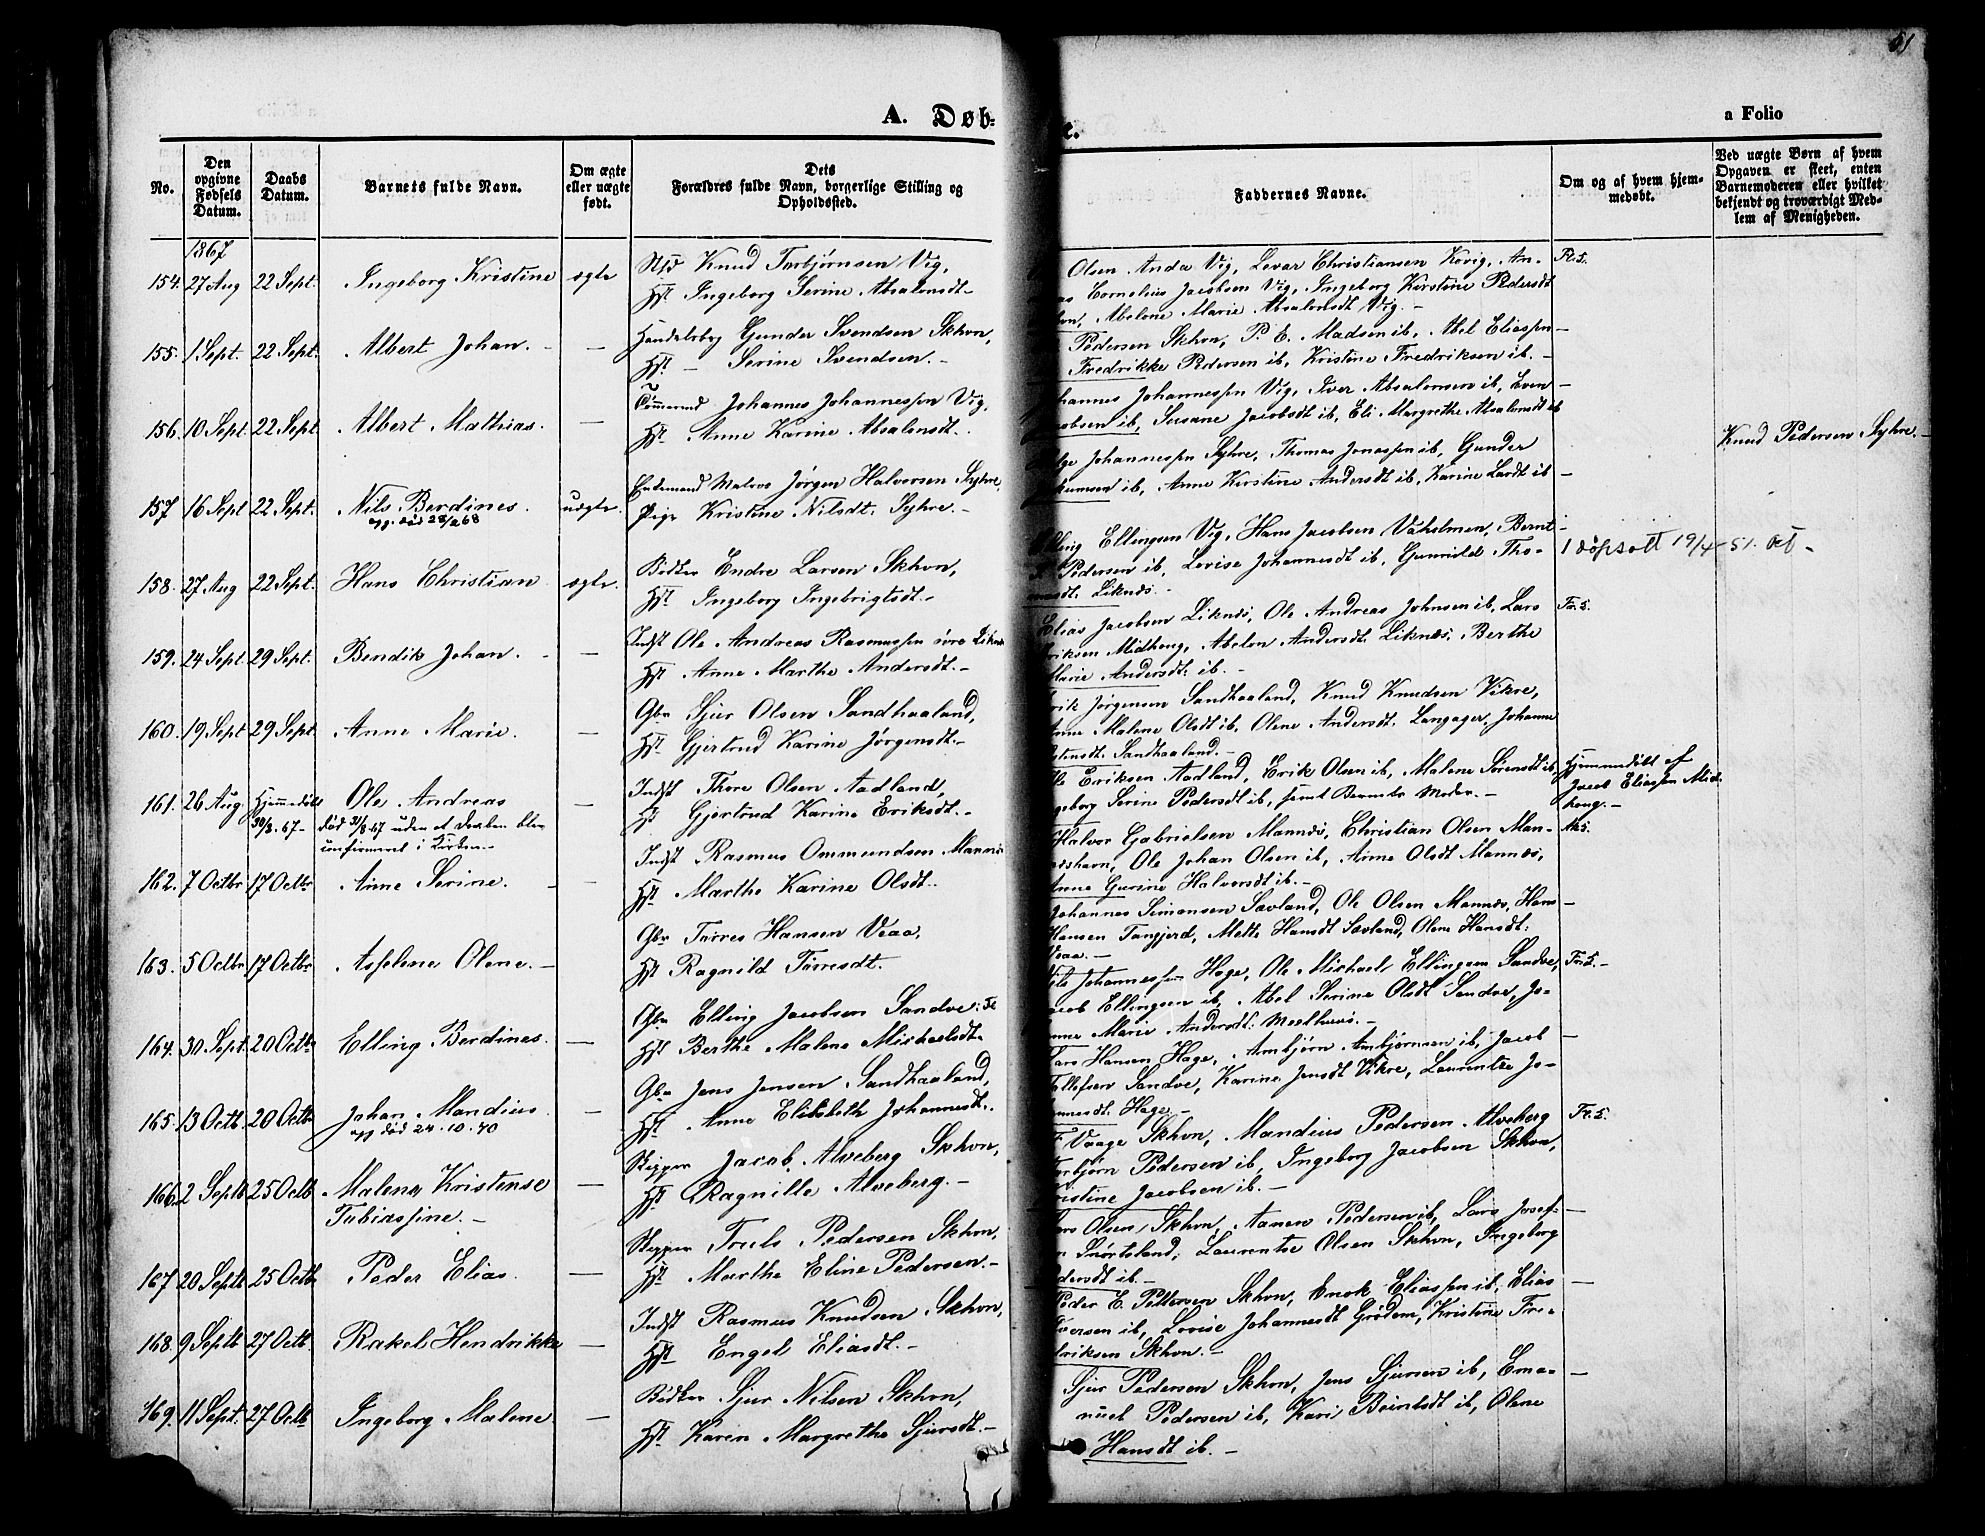 51
A. Døb-
e.
a Folio
No.
Den opgivne Fødsels Datum.
Daabs Datum.
Barnets fulde Navn.
Om ægte eller uægte født.
Dets Forældres fulde Navn, borgerlige Stilling og Opholdssted.
Faddernes Navne.
Om og af hvem hjemmedøbt.
Ved uægte Børn af hvem Opgaven er skeet, enten Barnemoderen eller hvilket bekjendt og troværdigt Medlem af Menigheden.
1867
154. 27 Aug 22 Sept. Ingeborg Kristine ægte
Knud Torbjørnsen Vig,
Hst Ingeborg Serine Absalonsdt.-
Olsen Anda Vig, Levar Christiansen Kovig, An-
as Cornelius Jacobsen Vig, Ingeborg Kirstine Pedersdt
Abelone Marie Absalonsdt Vig.-
155. 1 Sept. 22 Sept. Albert Johan. - -
Handelsbg Gunder Svendsen Skhvn,
Hst. - Serine Svendsen.-
Pedersen Skhvn, P. E. Madsen ib, Abel Eliassen
Fredrikke Pedersen ib, Kristine Fredriksen ib.-
156. 10 Sept. 22 Sept Albert Mathias. -
Tømmermd Johannes Johannessen Vig,
Hst. Anne Karine Absalonsdt.
hannes Johannessen Vig, Iver Absalonsen ib, Sven
cobsen ib, Susane Jacobsdt ib, Eli Margrethe Absalonsdt ib
157 16 Sept 22 Sept. Nils Berdines. uægte.
opg. død 28/2 68
Enkemand Matros Jørgen Halvorsen Syhre,
Pige Kristine Nilsdt. Syhre.-
Johannessen Syhre, Thomas Jonassen ib, Gunder
ib, Anne Kirstine Andersdt ib, Karine Larsdt ib
Knud Pedersen Syhre.-
158. 27 Aug 22 Sept. Hans Christian ægte.
Bødker Endre Larsen Skhvn,
Hst. Ingeborg Ingebrigtsdt.-
Elling Ellingsen Vig, Hans Jacobsen Vaholmen, Bernt
Pedersen ib, Lovise Johannesdt ib, Gunnild Tho-
masdt. Liknæs.-
1 døpsatt 19/4-51. AB-
159. 24 Sept. 29 Sept. Bendik Johan. - -
Indst Ole Andreas Rasmussen øvre Liknæs
Hst Anne Marthe Andersdt.-
Elias Jacobsen Liknæs, Ole Andreas Johnsen ib, Lars
riksen Midhoug, Abelon Andersdt. Liknæs, Berthe
Marie Andersdt: ib.-
160. 19 Sept 29 Sept. Anne Marie. -
Gbr Sjur Olsen Sandhaaland,
Hst. Gjertrud Karine Jørgensdt.-
Erik Jørgensen Sandhaaland, Knud Knudsen Vikre,
Malene Olsdt ib, Olene Andersdt. Langager, Johanne
stensdt. Sandhaaland.-
161. 26 Aug Hjemmedøbt Ole Andreas -
30/8.67- død 31/8 67 uden at Daaben blev
confirmeret i Kirken.-
Indst Thore Olsen Aadland,
Hst. Gjertrud Karine Eriksdt.-
Ole Eriksen Aadland, Erik Olsen ib, Malene Sørensdt ib,
Ingeborg Serine Pedersdt ib, samt Barnets Moder.-
Hjemmedøbt af
Jacob Eliassen Mid-
houg.-
162. 7 Octbr 17 Octbr Anne Serine. - -
Indst Rasmus Ommundsen Mannæs
Hst Marthe Karine Olsdt.
Halvor Gabrielsen Mannæs, Christian Olsen Man-
næshavn, Ole Johan Olsen ib, Anne Olsdt Mannæs,
Anne Gurine Halvorsdt ib.-
163. 5 Octbr 17 Octbr Asselene Olene.-
Gbr Torres Hansen Veaa,
Hst Ragnild Torresdt.
Johannes Simonsen Sævland, Ole Olsen Mannæs, Hans
Hansen Tangjerd, Mette Hansdt Sævland, Olene Hansdt:
Veaa.-
164. 30 Sept. 20 Octbr Elling Berdines. -
Gbr Elling Jacobsen Sandve
Hst Berthe Malene Michaelsdt.
Nils Johannessen Hage, Ole Michael Ellingsen Sandve,
Jacob Ellingsen ib, Abel Serine Olsdt Sandve, Jo-
hanne Marie Andersdt.
165. 13 Octb. 20 Octbr Johan Mandius. -
opg død 24.10.40
Gbr Jens Jensen Sandhaaland,
Hst Anne Elisabeth Johannesdt.
Lars Hansen Hage, Ambjørn Ambjørnsen ib, Jacob
Tollefsen Sandve, Karine Jensdt Vikre, Laurentze Jo-
hannesdt. Hage.-
166. 2 Septb 25 Octb Malena Kristense -
Tobiassine.-
Skipper Jacob Alveberg Skhvn,
Hst. Ragnille Alveberg.-
Vaage Skhvn, Mandius Pedersen Alveberg
Torbjørn Pedersen ib, Ingeborg Jacobsen Skhvn,
Kristine Jacobsen ib.-
167 20 Septb 25 Octb Peder Elias. -
Skipper Truls Pedersen Skhvn,
Hst. Marthe Eline Pedersen.-
Lars Olsen Skhvn, Aanen Pedersen ib, Lars Josef-
Snørteland, Laurentse Olsen Skhvn, Ingeborg
Pedersdt ib.-
168. 9 Septb 27 Octb. Rakel Hendrikke -
Indst Rasmus Knudsen Skhvn,
Hst Engel Eliasdt.-
Peder E. Pettersen Skhvn, Enok Eliassen ib, Elias
Iversen ib, Lovise Johannesdt Grødem, Kristine Fre-
driksen Skhvn.-
169. 11 Sept. 27 Octb Ingeborg Malene -
Bødker Sjur Nilsen Skhvn,
Hst. Karen Margrethe Sjursdt.-
Sjur Pedersen Skhvn, Jens Sjursen ib, Ema-
nuel Pedersen ib, Kari Berntsdt ib, Olene
Hansdt ib.-